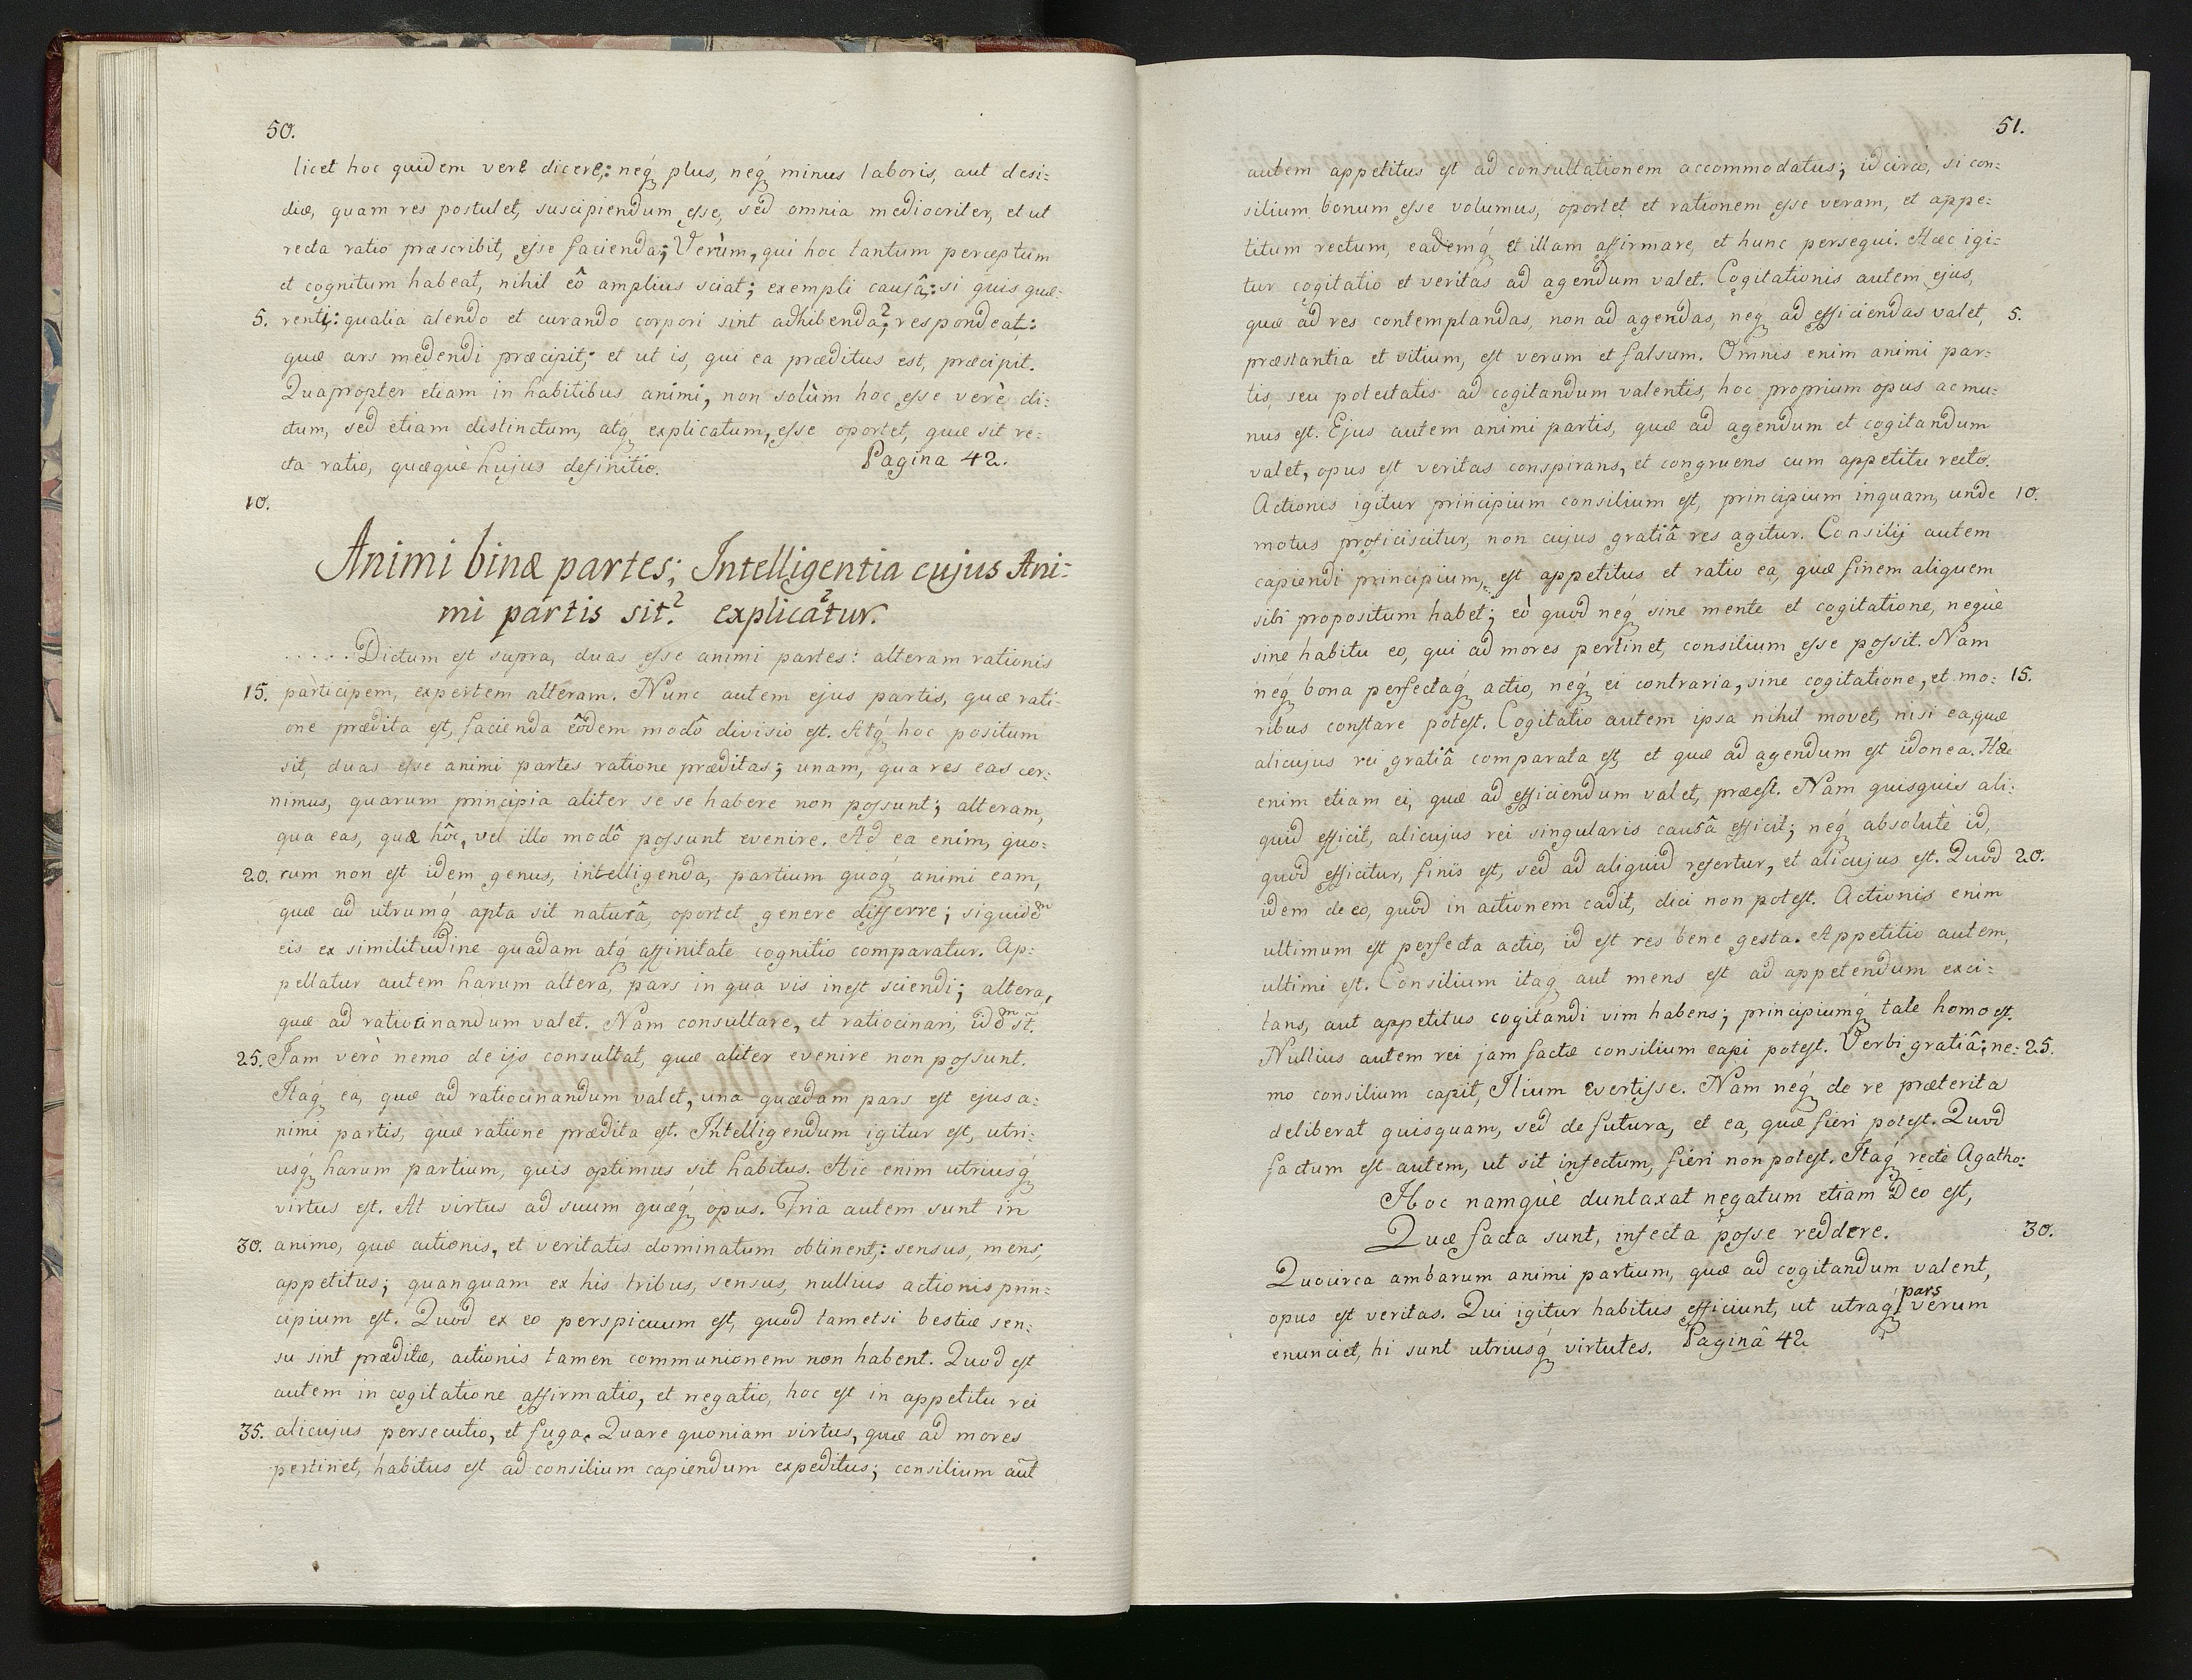 50.
licet hoc quidem verè dicere,: neq́ꝫ plus, neq́ꝫ minus laboris, aut desi:
diæ, quam res postulet, suscipiendum esse, sed omnia mediocriter, et ut
recta ratio præscribit, esse facienda; Verùm, qui hoc tantum perceptum
et cognitum habeat, nihil eô amplius sciat; exempli causâ,: si quis quæ:
5. renti: qualia alendo et curando corpori sint adhibenda? respondeat,:
quæ ars medendi præcipit; et ut is, qui ea præditus est, præcipit.
Quapropter etiam in habitibus animi, non solùm hoc esse verè di:
ctum, sed etiam distinctum, atq́ꝫ explicatum, esse oportet, quæ sit re:
cta ratio, quæquè hujus definitio. Pagina 42.
10.
Animi binæ partes; Intelligentia cujus Ani:
mi partis sit? explicatur.
. . . . . Dictum est supra, duas esse animi partes: alteram rationis
15. participem, expertem alteram. Nunc autem ejus partis, quæ rati:
one prædita est, facienda eôdem modô divisio est. Atq́ꝫ hoc positum
sit, duas esse animi partes ratione præditas; unam, qua res eas cer:
nimus, quarum principia aliter se se habere non possunt; alteram,
qua eas, quæ hôc, vel illo modô possunt evenire. Ad ea enim, quo:
20. rum non est idem genus, intelligenda, partium quoq́ꝫ animi eam,
quæ ad utrumq́ꝫ apta sit naturâ, oportet genere differre; siquidem
eis ex similitudine quadam atq́ꝫ affinitate cognitio comparatur. Ap:
pellatur autem harum altera, pars in qua vis inest sciendi; altera,
quæ ad ratiocinandum valet. Nam consultare, et ratiocinari, idem st̃.
25. Jam verò nemo de ijs consultat, quæ aliter evenire non possunt.
Itaq́ꝫ ea, quæ ad ratiocinandum valet, una quædam pars est ejus a:
nimi partis, quæ ratione prædita est. Intelligendum igitur est, utri:
usq́ꝫ harum partium, quis optimus sit habitus. Hic enim utriusq́ꝫ
virtus est. At virtus ad suum quæq́ꝫ opus. Tria autem sunt in
30. animo, quæ actionis, et veritatis dominatum obtinent,: sensus, mens,
appetitus; quanquam ex his tribus, sensus, nullius actionis prin:
cipium est. Quod ex eo perspicuum est, quod tametsi bestiæ sen:
su sint præditæ, actionis tamen communionem non habent. Quod est
autem in cogitatione affirmatio, et negatio, hoc est in appetitu rei
35. alicujus persecutio, et fuga. Quare quoniam virtus, quæ ad mores
pertinet, habitus est ad consilium capiendum expeditus; consilium aut̃
51.
autem appetitus est ad consultationem accommodatus; idcircò, si con:
silium bonum esse volumus, oportet et rationem esse veram, et appe:
titum rectum, eademq́ꝫ et illam affirmare, et hunc persequi. Hæc igi:
tur cogitatio et veritas ad agendum valet. Cogitationis autem ejus,
quæ ad res contemplandas, non ad agendas, neq́ꝫ ad efficiendas valet, 5.
præstantia et vitium, est verum et falsum. Omnis enim animi par:
tis, seu potestatis ad cogitandum valentis, hoc proprium opus ac mu:
nus est. Ejus autem animi partis, quæ ad agendum et cogitandum
valet, opus est veritas conspirans, et congruens cum appetitu recto.
Actionis igitur principium consilium est, principium inquam, unde 10.
motus proficiscitur, non cujus gratiâ res agitur. Consilij autem
capiendi principium, est appetitus et ratio ea, quæ finem aliquem
sibi propositum habet; eò quod neq́ꝫ sine mente et cogitatione, nequè
sine habitu eo, qui ad mores pertinet, consilium esse possit. Nam
neq́ꝫ bona perfectaq́ꝫ actio, neq́ꝫ ei contraria, sine cogitatione, et mo: 15.
ribus constare potest. Cogitatio autem ipsa nihil movet, nisi ea, quæ
alicujus rei gratiâ comparata est, et quæ ad agendum est idonea. Hæc
enim etiam ei, quæ ad efficiendum valet, præest. Nam quisquis ali:
quid efficit, alicujus rei singularis causâ efficit; neq́ꝫ absolutè id,
quod efficitur, finis est, sed ad aliquid refertur, et alicujus est. Quod 20.
idem de eo, quod in actionem cadit, dici non potest. Actionis enim
ultimum est perfecta actio, id est res bene gesta. Appetitio autem,
ultimi est. Consilium itaq́ꝫ aut mens est ad appetendum exci:
tans, aut appetitus cogitandi vim habens; principiumq́ꝫ tale homo est.
Nullius autem rei jam factæ consilium capi potest. Verbi gratiâ; ne: 25.
mo consilium capit, Ilium evertisse. Nam neq́ꝫ de re præterita
deliberat quisquam, sed de futura, et ea, quæ fieri potest. Quod
factum est autem, ut sit infectum, fieri non potest. Itaq́ꝫ rectè Agatho:
Hoc namquè duntaxat negatum etiam Deo est,
Quæ facta sunt, infecta posse reddere. 30.
Quocirca ambarum animi partium, quæ ad cogitandum valent,
opus est veritas. Qui igitur habitus efficiunt, ut utraq́ꝫ pars verum
enunciet, hi sunt utriusq́ꝫ virtutes. Paginâ 42